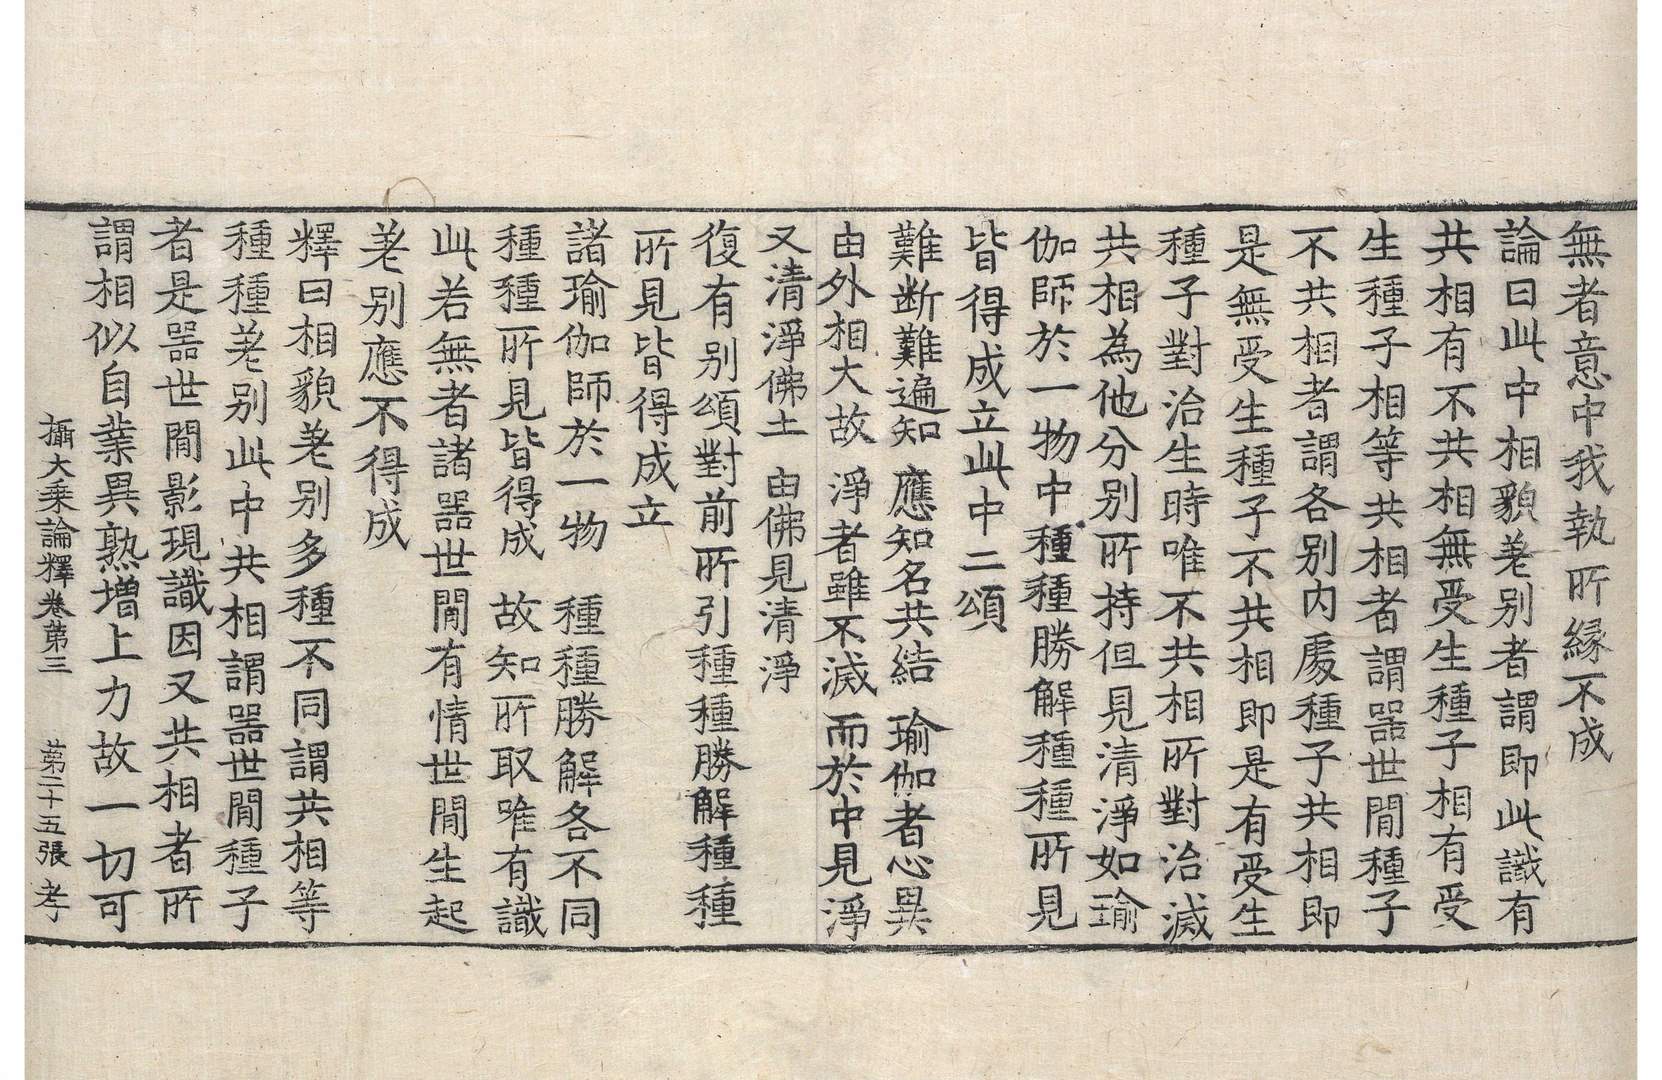 無者意中我執所縁不成
論曰此中相貌差別者謂即此識有
共相有不共相無受生種子相有受
生種子相等共相者謂器世間種子
不共相者謂各別內處種子共相即
是無受生種子不共相即是有受生
種子對治生時唯不共相所對治滅
共相為他分別所持但見清淨如瑜
伽師於一物中種種勝解種種所見
皆得成立此中二頌
難斷難遍知 應知名共結 瑜伽者心異
由外相大故 淨者雖不滅 而於中見淨
又清淨佛土 由佛見清淨
復有別頌對前所引種種勝解種種
所見皆得成立
諸瑜伽師於一物 種種勝解各不同
種種所見皆得成 故知所取唯有識
此若無者諸器世間有情世間生起
差別應不得成
釋曰相貌差別多種不同謂共相等
種種差別此中共相謂器世間種子
者是器世間影現識因又共相者所
謂相似自業異熟增上力故一切可
攝大乘論釋卷第三 第二十五張 孝